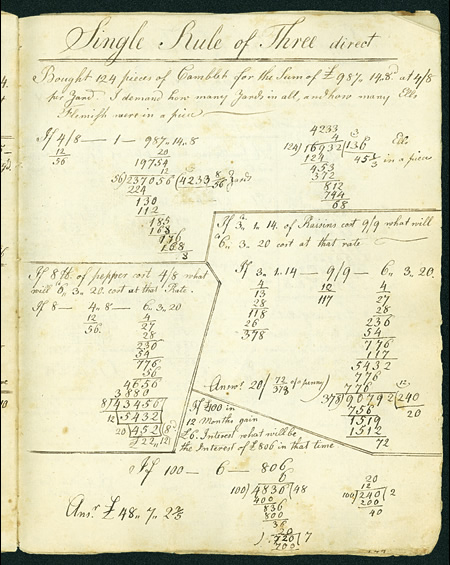 Single Rule of Three direct
Bought 124 pieces of Camblet for the Sum of £ 987.. 14..8d at 4/8
per Yard. I demand how many Yards in all, and how many Ells
Flemish were in a piece
If 4/8 — 1 — 987..14..8
12 20
56 19754
12
56) 237056 (4233 8/56 Yards
224
130
112
185
168
176
168
8
4233
4 3
124) 16932 (136 Ells
124 45 1/3 in a piece
453
372
812
744
68
If 8 lb of pepper cost 4/8 what
will 6.. 3.. 20 cost at that Rate
If 8 — 4..8 — 6.. 3.. 20
12 4
56 27
28
236
54
776
56
4656
3880
8) 43456
12 5432
20 452 8
£ 22..12
If 3.. 1.. 14. of Raisins cost 9/9 what will
6.. 3.. 20 cost at that rate
If 3.. 1..14 — 9/9 — 6.. 3..20
4 12 4
13 117 27
28 28
118 236
26 54
378 776
117
5432
776
776
Answr. 20/ 72/378 of a penny
12
378) 90792 (240
756 20
1519
1512
72
If £100 in
12 Months gain
£6. Interest what will be
the Interest of £806 in that time
If 100 — 6 — 806
6
100) 4836 (48
400
836
800
36
20
) 720 7
700
20
12
100) 240 2
200
40
Ansr. £ 48.. 7.. 2 2/5